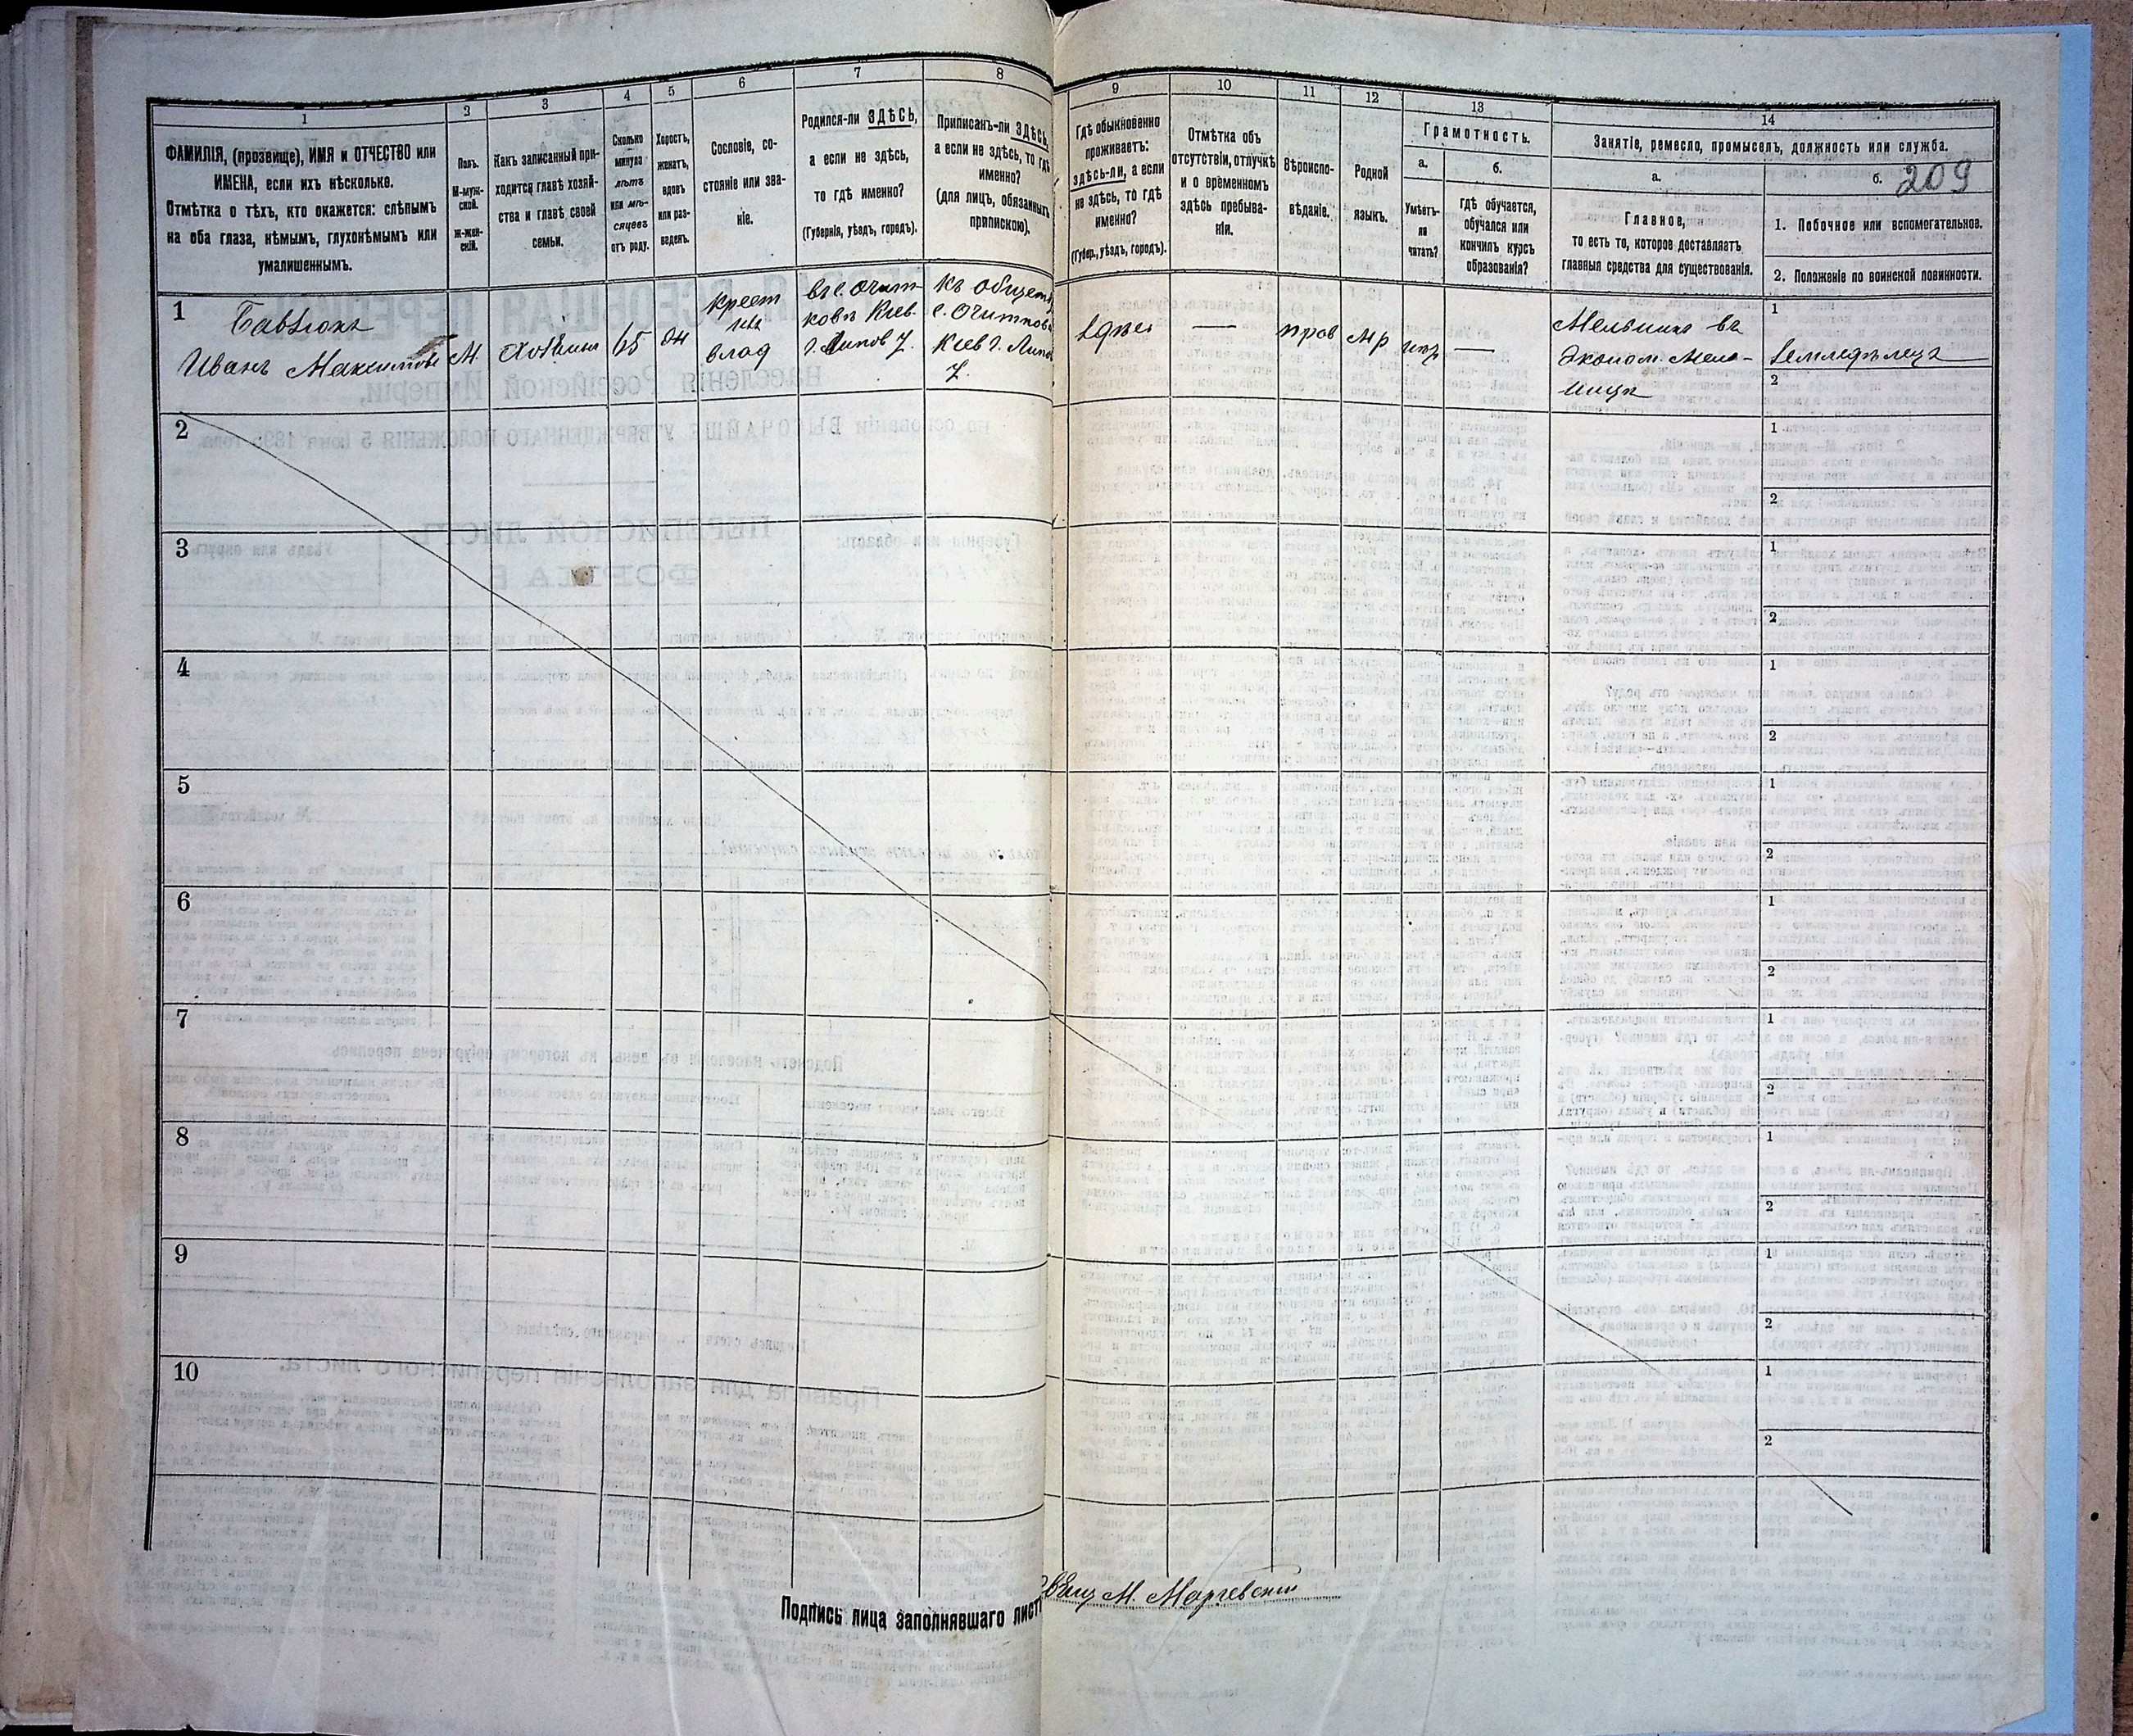 1
2
3
4
5
6
7
8
9
10
11
12
13
14
ФАМИЛІЯ, (прозвище), ИМЯ и ОТЧЕСТВО или
ИМЕНА, если ихъ нѣсколько.
Отмѣтка о тѣхъ, кто окажется: слѣпымъ
на оба глаза, нѣмымъ, глухонѣмымъ или
умалишеннымъ.
Полъ.
М-муж-
ской.
ж-жен-
скій.
Какъ записанный при-
ходится главѣ хозяй-
ства и главѣ своей
семьи.
Сколько
минуло
лѣтъ
или мѣ-
сяцевъ
отъ роду.
Холостъ,
женатъ,
вдовъ
или раз-
веденъ.
Сословіе, со-
стояніе или зва-
ніе.
Родился-ли ЗДѢСЬ,
а если не здѣсь,
то гдѣ именно?
(Губернія, уѣздъ, городъ).
Приписанъ-ли ЗДѢСЬ,
а если не здѣсь, то гдѣ
именно?
(для лицъ, обязанныхъ
припискою).
Гдѣ обыкновенно
проживаетъ:
здѣсь-ли, а если
не здѣсь, то гдѣ
именно?
(Губер., уѣздъ, городъ).
Отмѣтка объ
отсутствіи, отлучкѣ
и о временномъ
здѣсь пребыва-
ніи.
Вѣроиспо-
вѣданіе.
Родной
языкъ.
Грамотность.
а.
Умѣетъ-
ли
читать?
б.
гдѣ обучается,
обучался или
кончилъ курсъ
образованія?
Занятіе, ремесло, промыселъ, должность или служба.
а.
Главное,
то есть то, которое доставляетъ
главныя средства для существованія.
б.
209
1. Побочное или вспомогательное.
2. Положеніе по воинской повинности.
1
Иванъ Максимовъ
М.
Хозяинъ
65
крест
влад
къ общест
Кіев г. Липов
У.
здѣсь
—
прав
мр
—
Мельникъ въ
Эконом. Мель-
ницѣ
1
Земледѣлецъ
2
2
1
2
3
1
2
4
1
2
5
1
2
6
1
2
7
1
2
8
1
2
9
1
2
10
1
2
Подпись лица заполнявшаго листъ